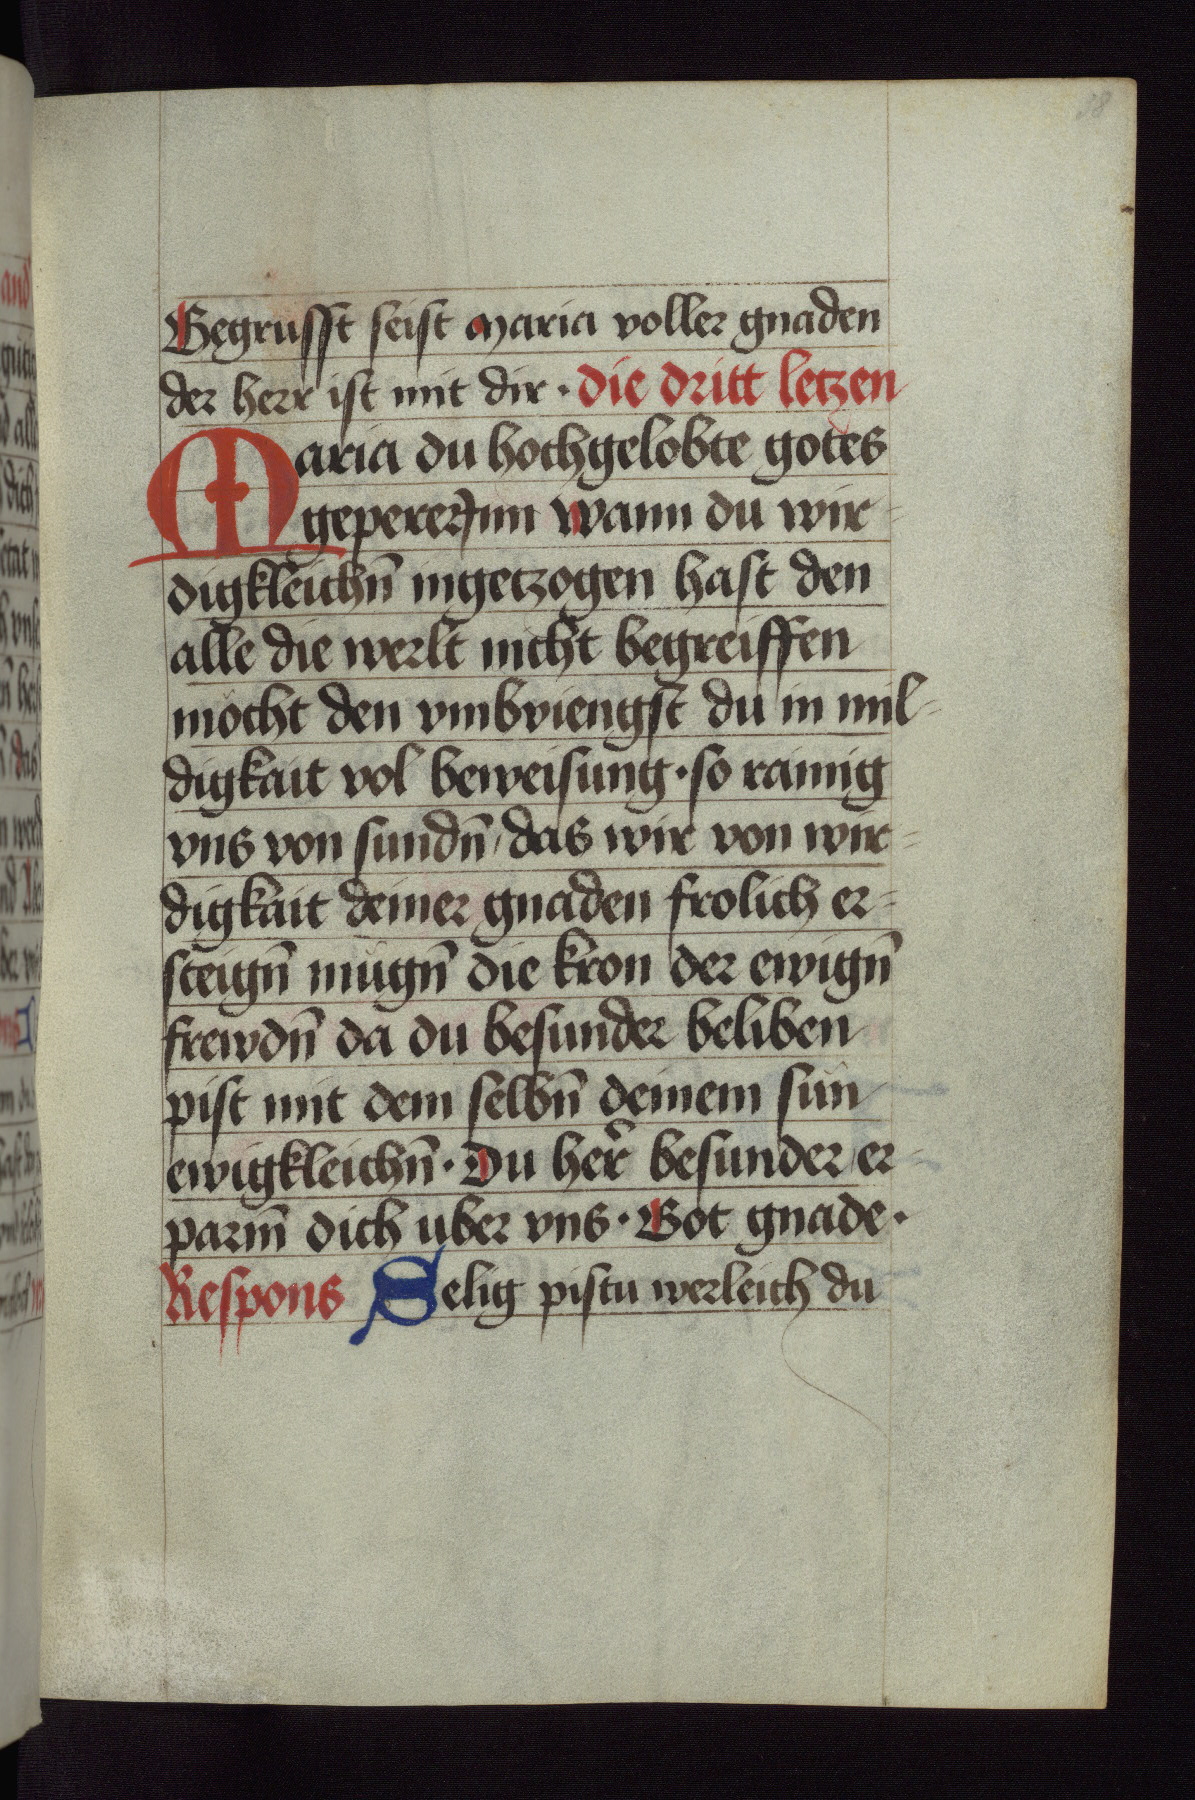 38
Begrusst seist maria voller gnaden
der herr ist mit dir · die dritt letzen
Maria du hochgelobte gotes
gepererinn wann du wir=
digkleichn̄ ingetzogen hast den
alle die werlt nicht begreiffen
mocht den vmbviengst du in mil=
digkait vol beweisung · so rainig
vns von sundn̄ / das wir von wir=
digkait deiner gnaden frolich er=
steign̄ mugn̄ die kron der ewign̄
frewdn̄ da du besunder beliben
pist mit dem selbn̄ deinem sun
ewigkleichn̄ · Du her̄ besunder er=
parm̄ dich uber vns · Got gnade ·
Respons Selig pistu werleich du